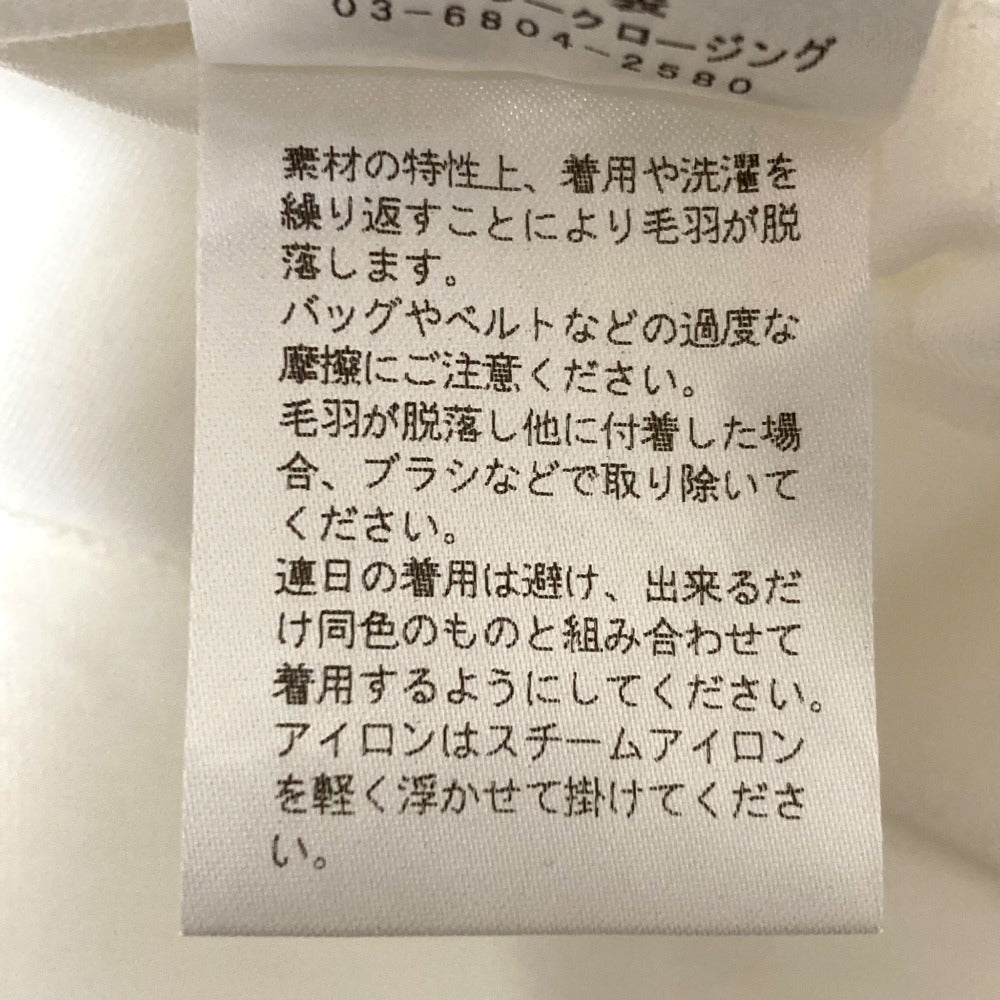 ークロージング
03-6804-2580
素材の特性上、着用や洗濯を
繰り返すことにより毛羽が脱
落します。
バッグやベルトなどの過度な
摩擦にご注意ください。
毛羽が脱落し他に付着した場
合、ブラシなどで取り除いて
ください。
連日の着用は避け、出来るだ
け同色のものと組み合わせて
着用するようにしてください。
アイロンはスチームアイロン
を軽く浮かせて掛けてくださ
い。